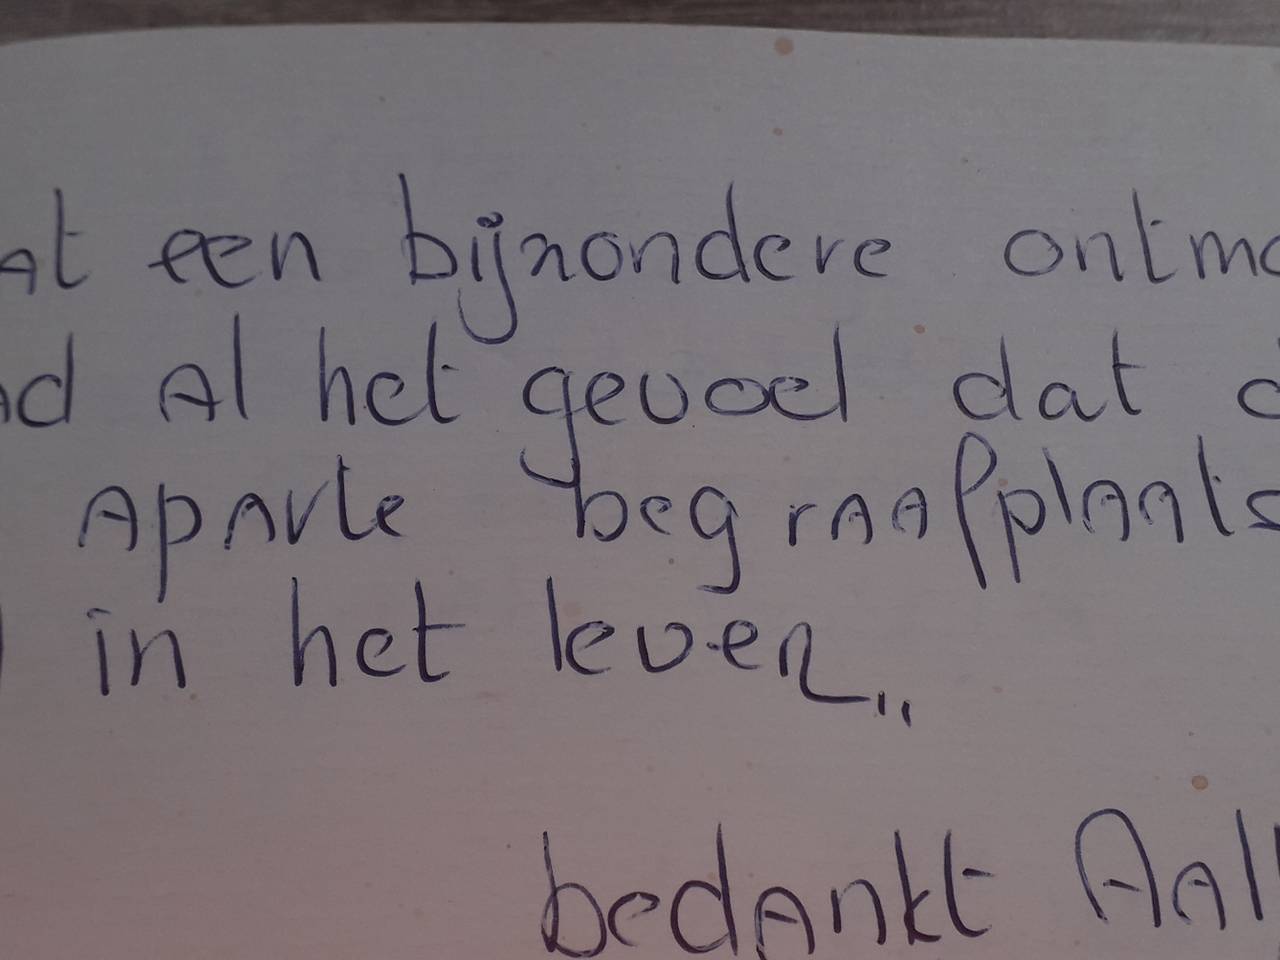 at een bijzondere ontmo
ad al het gevoel dat d
aparte begraafplaats
in het leven„
bedankt Aal